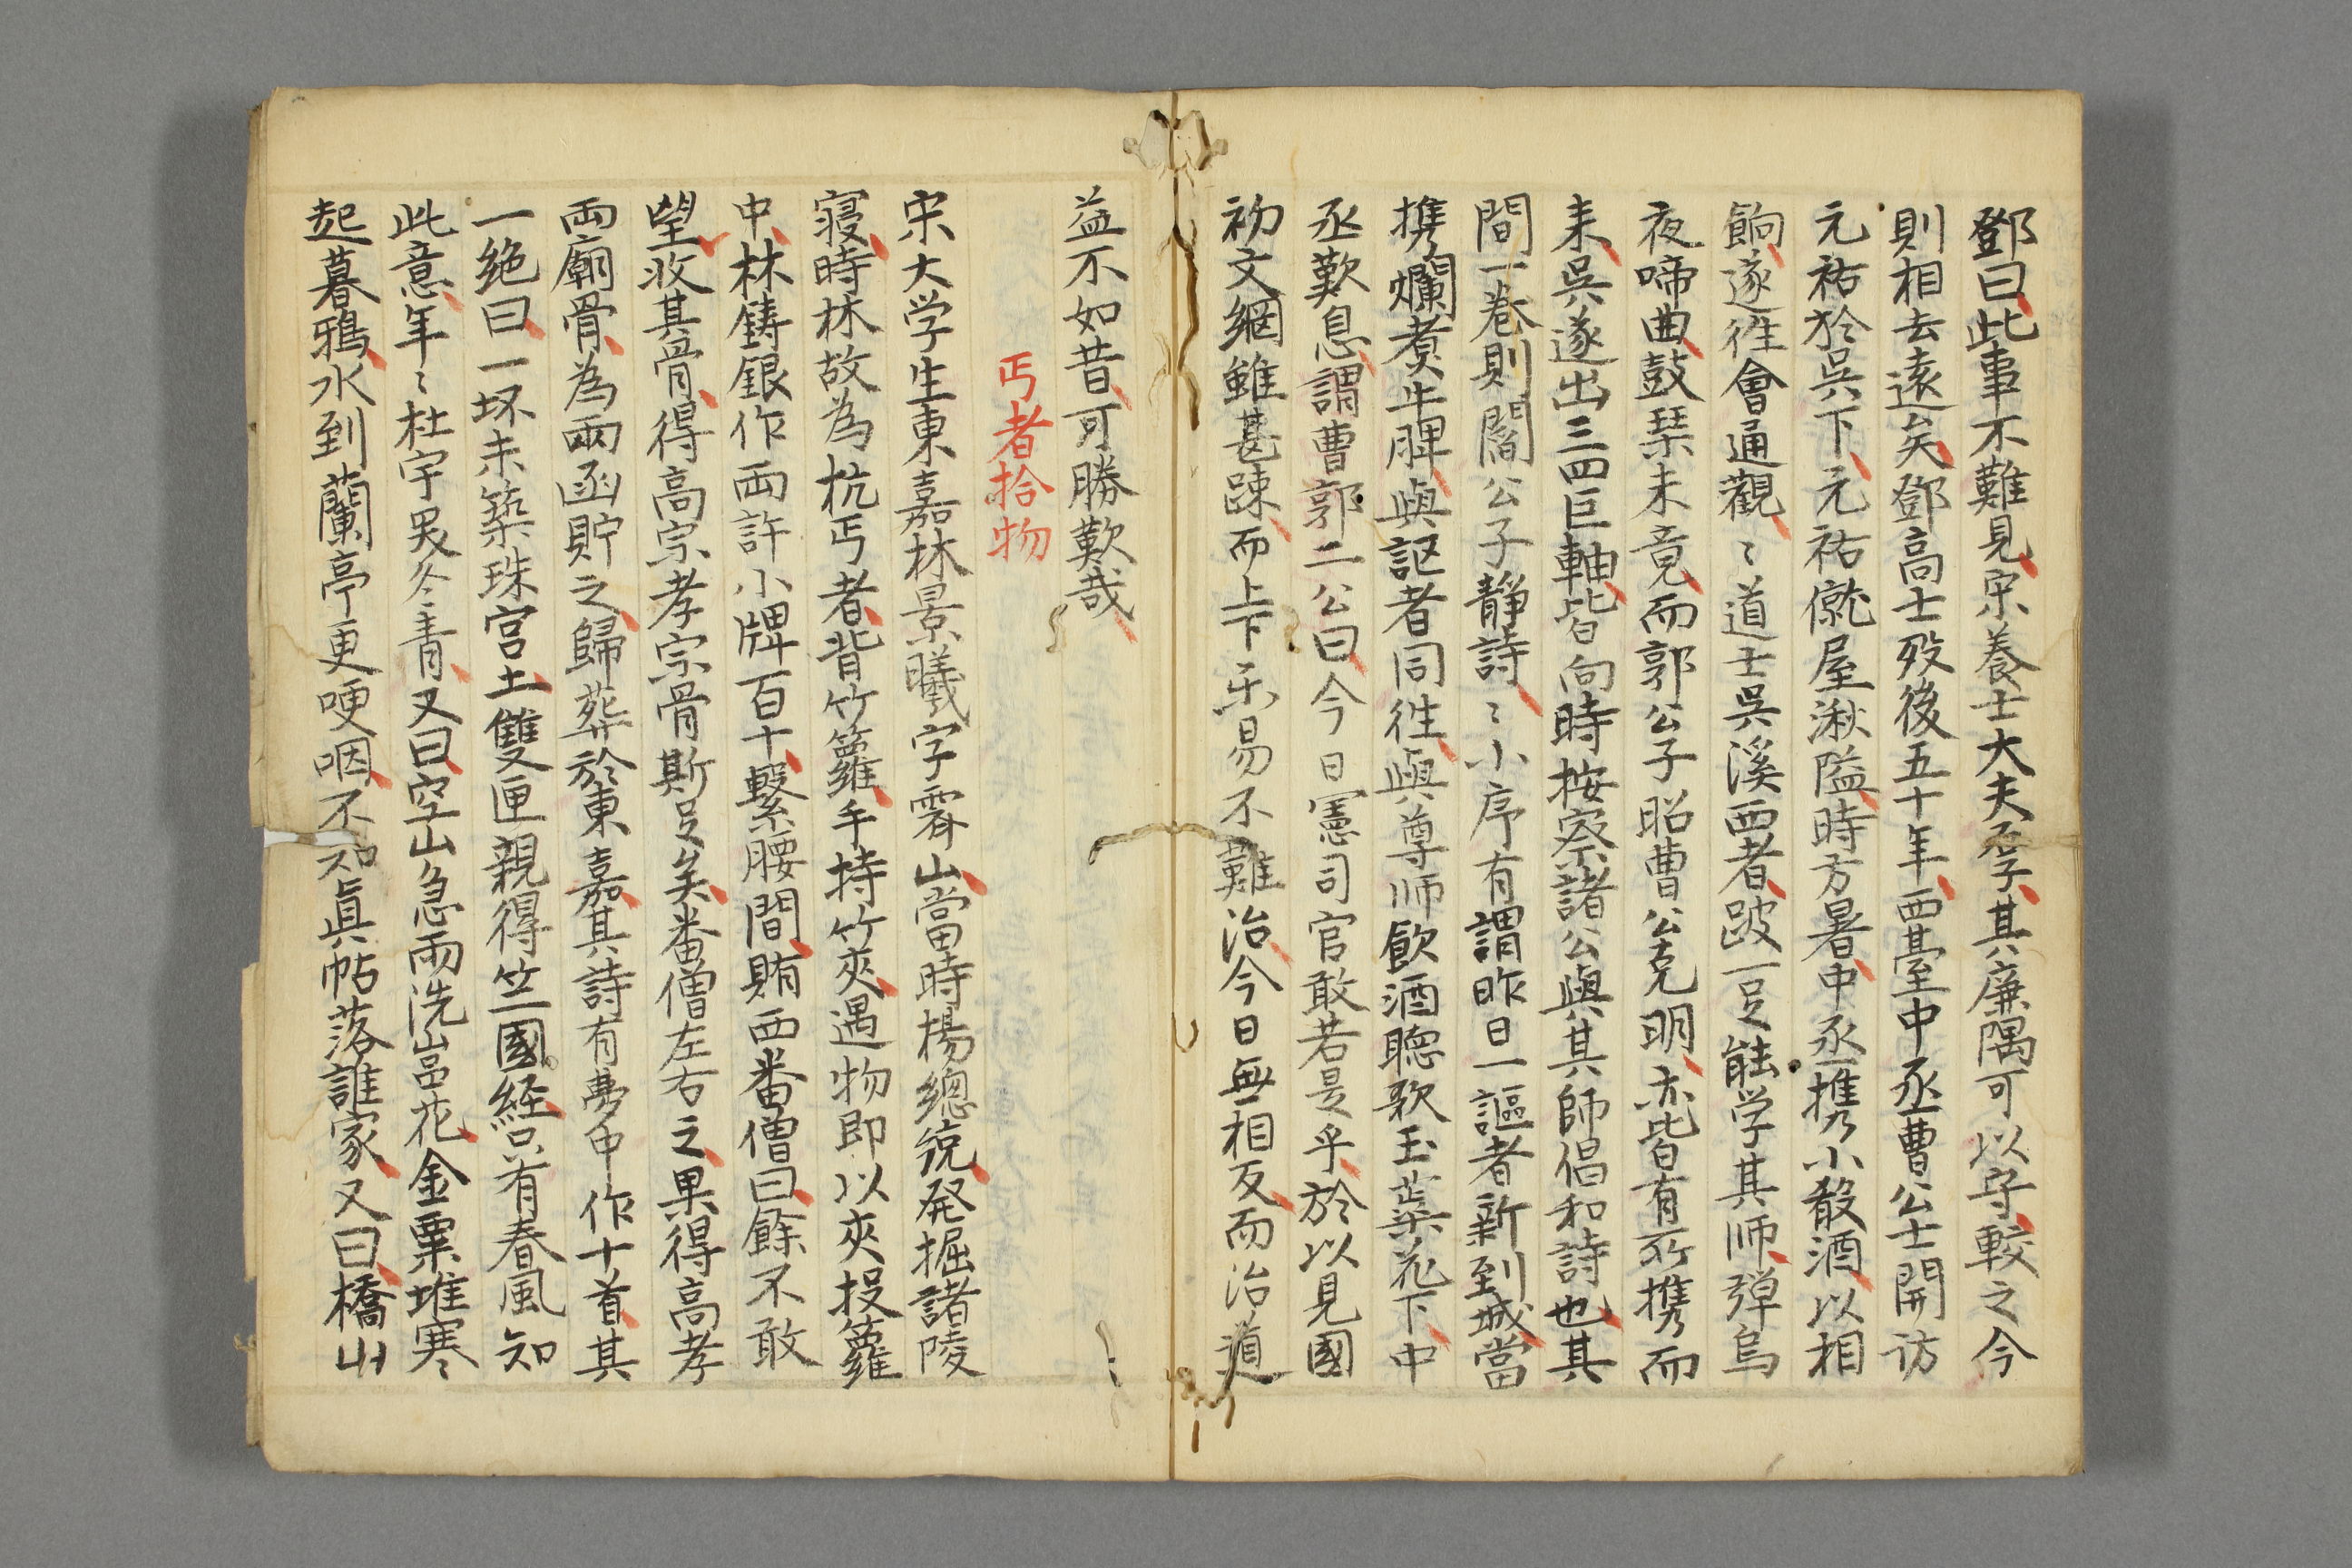 鄧曰此事不難見宋養士大夫厚其廉隅可以守較之今
則相去遠矣鄧高士歿後五十年西臺中丞曹公士開访
元祐於呉下元祐僦屋湫隘時方暑中丞携小殽酒以相
餉遂徃會通觀〻道士呉溪西者跛一足能学其师弾烏
夜啼曲鼓琹未竟而郭公子昭曹公克明亦皆有所携而
来呉遂出三四巨軸皆向時按察諸公與其師倡和詩也其
間一巻則閻公子靜詩〻小序有謂昨日一謳者新到城當
携爛煑牛脾與謳者同徃與尊师飲酒聴歌玉蘂花下中
丞歎息謂曹郭二公曰今日憲司官敢若是乎於以見國
初文綱雖甚踈而上下乐易不難治今日無相反而治道
益不如昔可勝歎哉
丐者拾物
宋大学生東嘉林景曦字霽山當時楊緫統発掘諸陵
寝時林故為杭丐者背竹籮手持竹夾遇物即以夾投籮
中林鋳銀作両許小牌百十繋腰間賄西番僧曰餘不敢
望收其骨得高宗孝宗骨斯足矣番僧左右之果得高孝
両廟骨為兩函貯之歸葬於東嘉其詩有夢中作十首其
一绝曰一坏未築珠宫土雙匣親得竺國経只有春風知
此意年〻杜宇哭冬青又曰空山急雨洗岩花金粟堆寒
起暮鴉水到蘭亭更哽咽不知眞帖落誰家又曰橋山